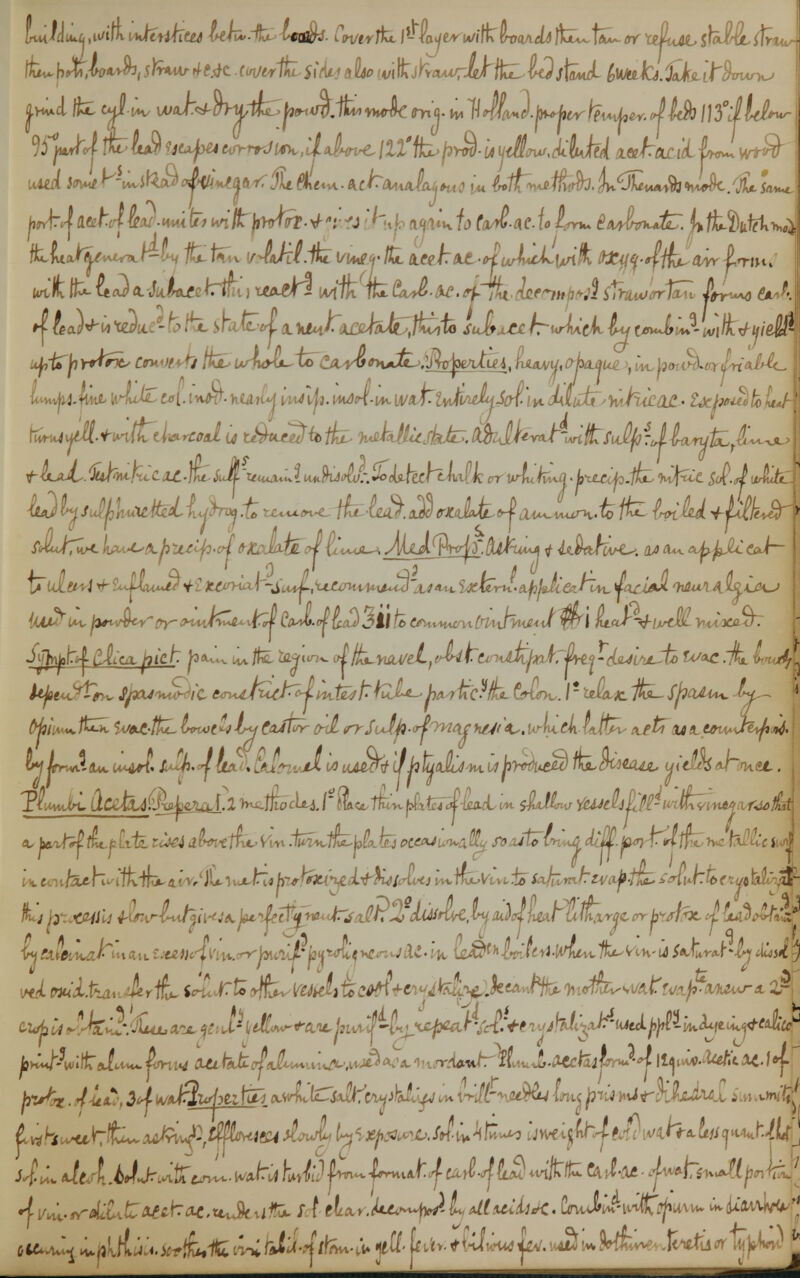 building, with interstices betw. the beads. Cover the 1st layer with boards then tan or refuse stable straw
then pots, boards, straw &c &c. cover the sides also with straw, let the bed stand 6 weeks. Take it down
grind the cyl. in wat. & dry the powd. this mode orig. in Holland. proper temper. of beds 113° if below
95° part of the lead escapes corrosion, if above 122° the prod. is yellow, diluted acet. acid from wood
used somets instead of vinegar. The Chem. act. analagous in both methods. In Thenards mode. The same
port. of acet. of lead unites with protox. & gives it up again to Carb. ac. to form Carbonate. In the Dutch mode
the heat generatd by the tan volatil. the vineg. the acet. ac. of which with oxyg. of the air form.
with the lead a subacet. this reactd with the Carb. ac. of the decomposd straw or tan forms Carb.
of lead & is reducd to the state of a neut. acetate, this to subacet. which by combing with & yieldg
up to protox. converts the whole to Carbonate. Properties, heavy, opaque, in powd. or friable
lumps. fine white col. inod. nearly insip. insol. in wat. Entirely sol. in dilute nitric ac. Exposed to heat
turns yell. & with charcoal is reduced to the metallic state. Adulteratd with sulphs of baryta, lime
& lead. In nitric ac. the sulfs remaind undisolvd. To detect chalk or whiting. precip. the nitric sol. of white
lead by sulphuretted hydrog. to remove the lead. add oxalate of ammon. to the boiled & filtered
solut, we have a precip. of oxalate of lime. Med Props. Astring & sedative. as an applicat
to ulcers & inflamed & excoriatd surf, recommendd as an extern. applicat. in facial neuralgia
used in powder or ointment of Carb. of lead ʒii to common Ointment ℥i heatd & well mixed.
Sympt. of Colica pict. pain in the region of the navel, obst. constipat. freqt desire to evac. the bowels
dependt on spasmodic constrict. of intest. tube partic.ly the Colon. 1st relax the spasm by
Opium then evac. the bowels by castor oil or Sulp. of magnesia. which latter acts as a counterpois.
by formg an insol. sulp. of lead. Calomel is used & if ptyalism is produced the disease yields at once.
Plumbi Acetas. Preparat. 2 methodes. 1st Place thin plates of lead in shallow vessels filld with vinegar so that
a part of the plate rises above the vin. turn the plates occasionally so as to bring diff. port. of the metallic surf
in contact with the air. The met. is protoxized & dissolves in the vin. to saturat. evap. the solut. to crystalizat
this process is slow but gives a perfectly neut. salt. 2d dissolve, by aid of heat litharge or protox. of lead obtaind
by calcinat. in an excess of vin. or purifd pyroligneous ac. in leaden boilers. When the vin. is saturatd by dissol
ved oxid. transfer the solut. to other vessels to cool & crystalize. decant the mother wat. evapg anew a 2d
crop is obtaind. These are genlly yellow & are purifd by repeatd sol. & crystalizat. used pply in dyeing & calico
printg with alum forms acetate of alumina, used as a mordant. Plumb. acetas formd of 1 equiv. Acetic ac. 1 of
protox. of lead, 3 of wat. Properties a white salt. crystalizes in brillt needles long prisms & dihedral summits
first sweet. then astringt. Effloresces slowly by exposure. sol. in 4 times its weight of cold wat. & a less quant. of hot
sol. in alcoh. Solut. with com. wat. is turbid from format. of carb. of lead with the Carb. ac. of wat. small portion
of vin. or dilute acet. ac. renders the sol clear. decomposd by all acids &c. Combind with opium in diarrhoea
occuring in phthisis. soothes the irritabil. of stom. in yell. fever. & bilious fev. used in dothinenteretis or typhoid